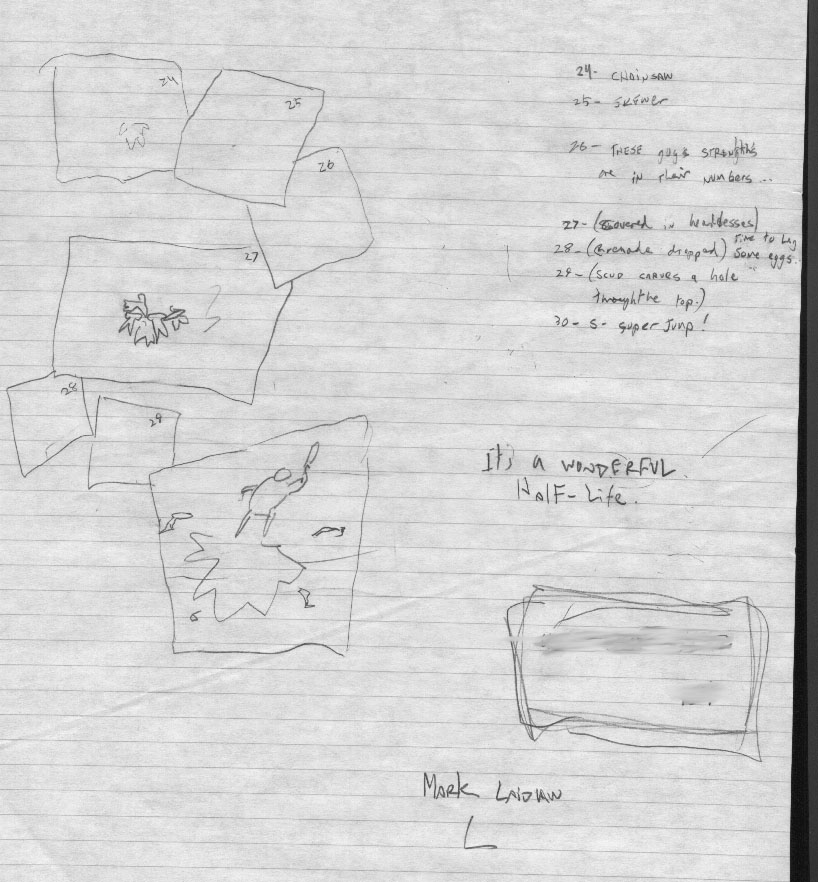 24
25
26
27
28
29
24- CHAINSAW
25- SKEWER
26- THESE guy's STRENgths
are in their numbers...
27- (Covered in headasses)
28- (Grenade dropped) time to lay
some eggs..
29- (SCUD CARVES a hole
through the top.)
30- S- super Jump!
It's a WONDERFUL.
Half-Life.
MARK LAIDLAW
L